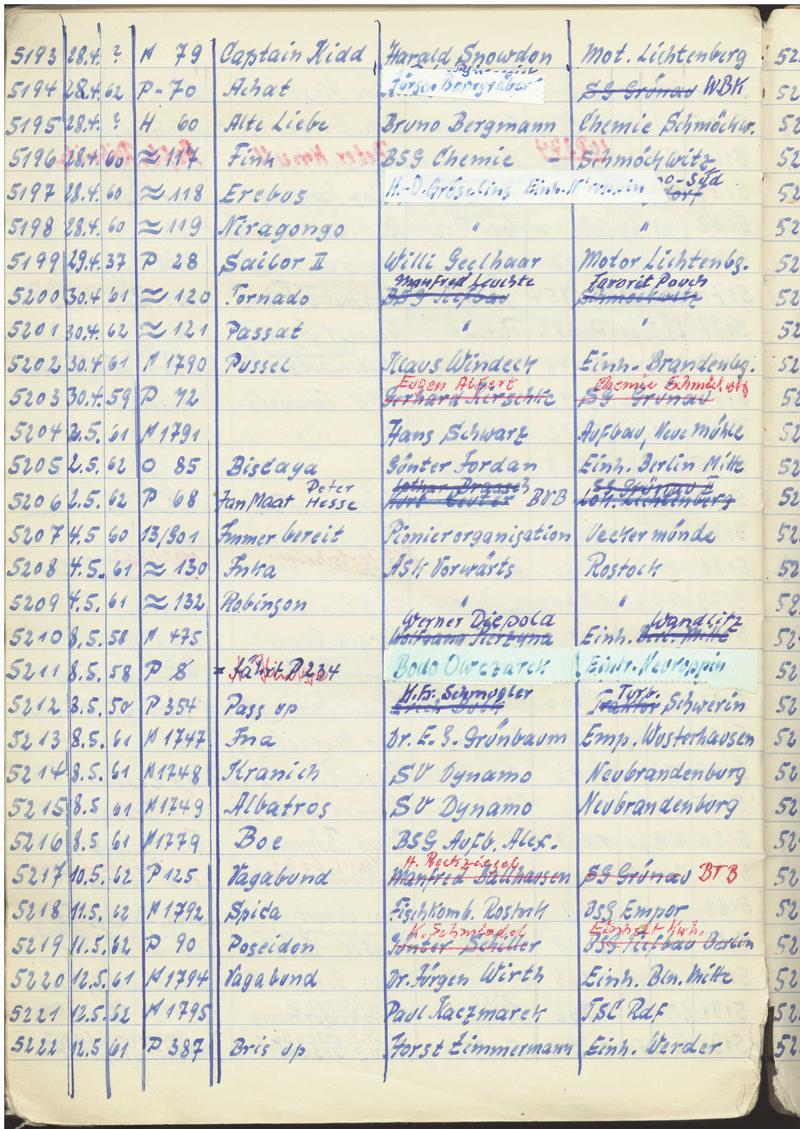 5193 28.4. ? M 79 Captain Kidd Harald Snowdon Mot. Lichtenberg
5194 28.4. 62 P-70 Achat Jürgen SG Grünau WBK
5195 28.4. ? H 60 Alte Liebe Bruno Bergmann Chemie Schmöckw.
5196 28.4. 60 ≈ 117 Fink BSG Chemie – Schmöckwitz
5197 28.4. 60 ≈ 118 Erebus H.-D. Einh.
5198 28.4. 60 ≈ 119 Niragongo " "
5199 29.4. 37 P 28 Sailor II Willi Geelhaar Motor Lichtenbg.
Manfred Leuchte Favorit Pouch
5200 30.4. 61 ≈ 120 Tornado BSG Tiefbau Schmöckwitz
5201 30.4. 62 ≈ 121 Passat " "
5202 30.4 61 M 1790 Pussel Klaus Windeck Einh. Brandenbg.
Eugen Albert Chemie Schmöckwitz
5203 30.4. 59 P 72 Gerhard Kerschke SG Grünau
5204 2.5. 61 M 1791 Hans Schwarz Aufbau, Neue Mühle
5205 2.5. 62 O 85 Bisdaga Günter Jordan Einh. Berlin Mitte
Peter Lothar Braasch SG Grünau
5206 2.5. 62 P 68 Jan Maat Hesse BVB Lichtenberg
5207 4.5 60 13/901 Immer bereit Pionierorganisation Ueckermünde
5208 4.5. 61 ≈ 130 Inka ASK Vorwärts Rostock
5209 4.5. 61 ≈ 132 Robinson " "
Werner Diepold Wandlitz
5210 8.5. 58 M 475 Wolfgang Einh. Bln. Mitte
5211 8.5. 58 P 8 = fährt P234 Bodo Owczarek Einh. Neuruppin
H.Jr. Schmogler Turb.
5212 8.5. 50 P 354 Pass up Erich Traktor Schwerin
5213 8.5. 61 M 1747 Ina Dr. E. G. Grünbaum Emp. Wusterhausen
5214 8.5. 61 M 1748 Kranich SV Dynamo Neubrandenburg
5215 8.5 61 M 1749 Albatros SV Dynamo Neubrandenburg
5216 8.5. 61 M 1779 Boe BSG Aufb. Alex.
H.
5217 10.5. 62 P 125 Vagabund Manfred SG Grünau BTB
5218 11.5. 62 M 1792 Spica Fischkomb. Rostock BSG Empor
K. Einheit
5219 11.5. 62 P 90 Poseidon Günter Schiller BSG Tiefbau Berlin
5220 12.5. 61 M 1794 Vagabund Dr. Jürgen Wirth Einh. Bln. Mitte
5221 12.5. 62 M 1795 Paul Kaczmarek TSC Rdf
5222 12.5 61 P 387 Bris up Horst Zimmermann Einh. Werder